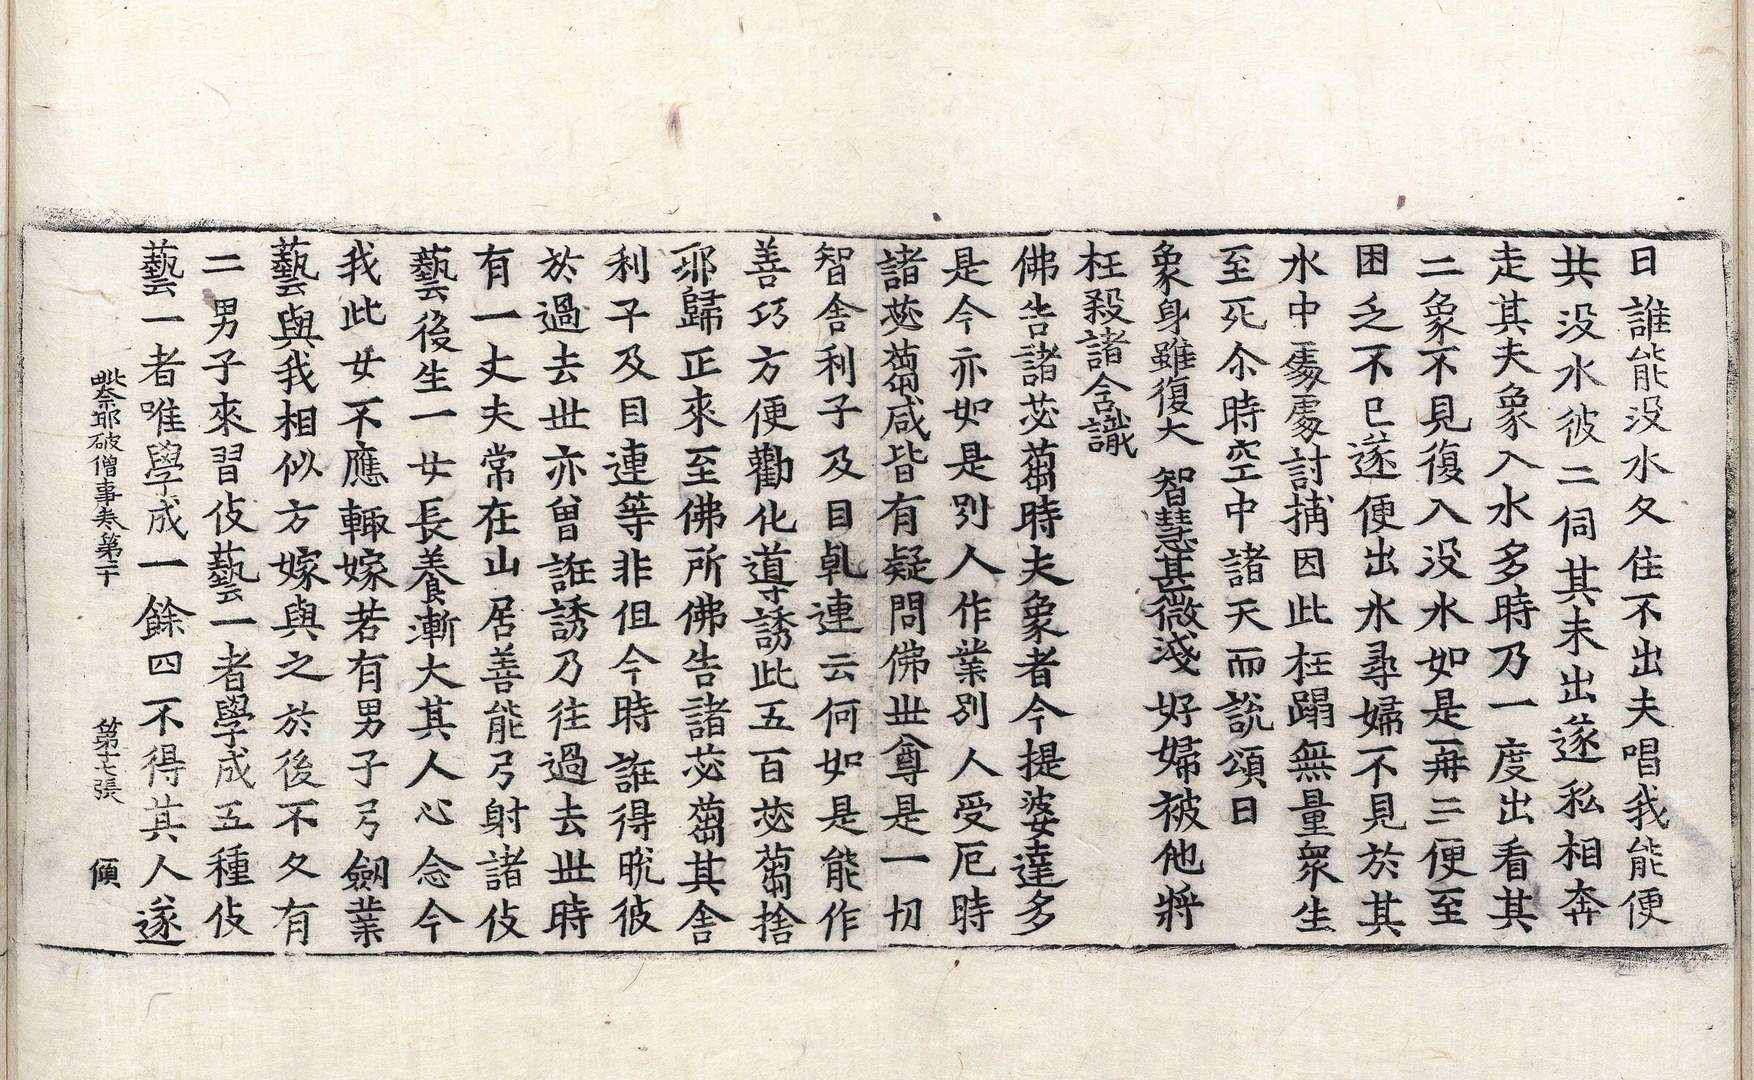 曰誰能没水久住不出夫唱我能便
共没水彼二伺其未出遂私相奔
走其夫象入水多時乃一度出看其
二象不見復入没水如是再三便至
困乏不已遂便出水尋婦不見於其
水中處處討捕因此枉蹋無量衆生
至死尒時空中諸天而說頌曰
象身雖復大　智慧甚微淺　好婦被他將
枉殺諸含識
佛告諸苾蒭時夫象者今提婆達多
是今亦如是別人作業別人受厄時
諸苾蒭咸皆有疑問佛世尊是一切
智舍利子及目乹連云何如是能作
善巧方便勸化導誘此五百苾蒭捨
邪歸正來至佛所佛告諸苾蒭其舍
利子及目連等非但今時誑得脫彼
於過去世亦曾誑誘乃往過去世時
有一丈夫常在山居善能弓射諸伎
藝後生一女長養漸大其人心念今
我此女不應輙嫁若有男子弓劒業
藝與我相似方嫁與之於後不久有
二男子來習伎藝一者學成五種伎
藝一者唯學成一餘四不得其人遂
毗奈耶破僧事卷第二十　第十七張　傾